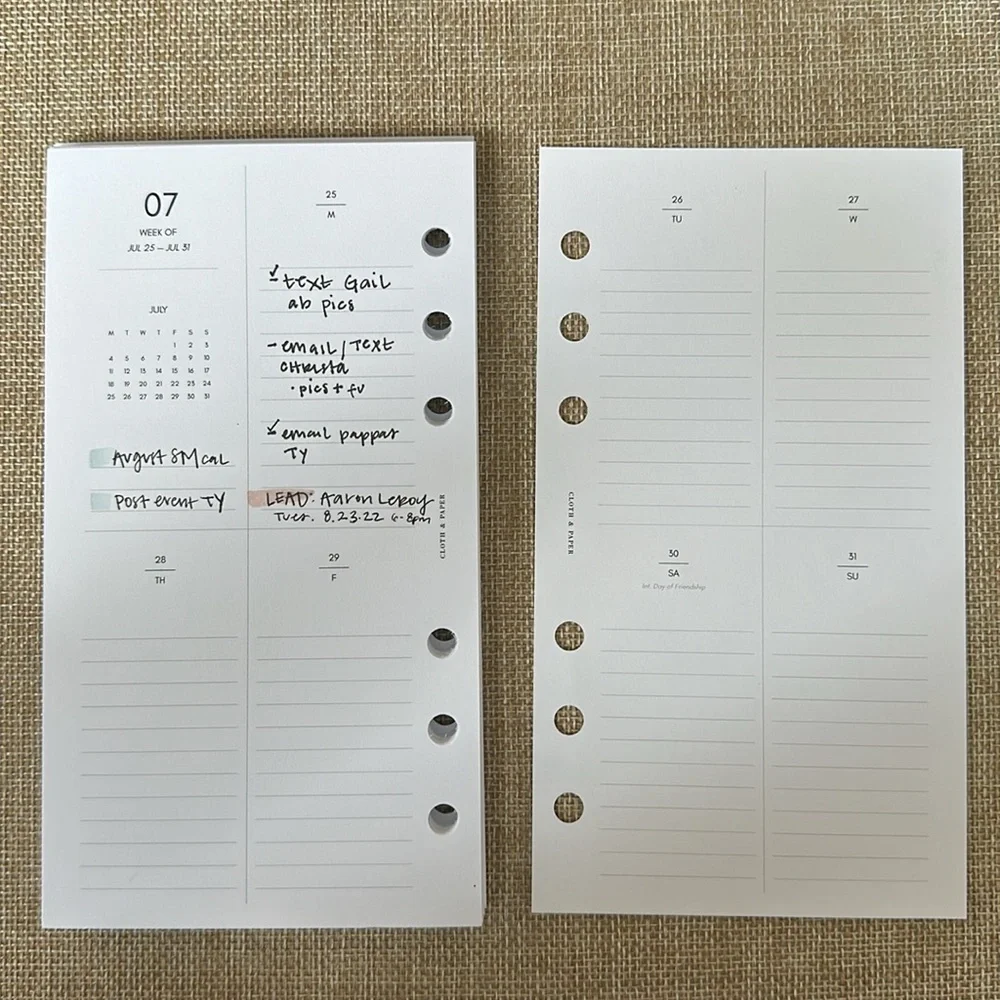 07
WEEK OF
JUL 25 — JUL 31
JULY
M T W T F S S
1 2 3
4 5 6 7 8 9 10
11 12 13 14 15 16 17
18 19 20 21 22 23 24
25 26 27 28 29 30 31
August SM cal
Post event TY
25
M
text Gail
ab pics
- email / TEXT
CHRISTA
• pics + fu
email pappas
TY
LEAD: Aaron Leroy
Tues. 8.23.22 6-8pm
28
TH
29
F
CLOTH & PAPER
26
TU
27
W
CLOTH & PAPER
30
SA
Int. Day of Friendship
31
SU